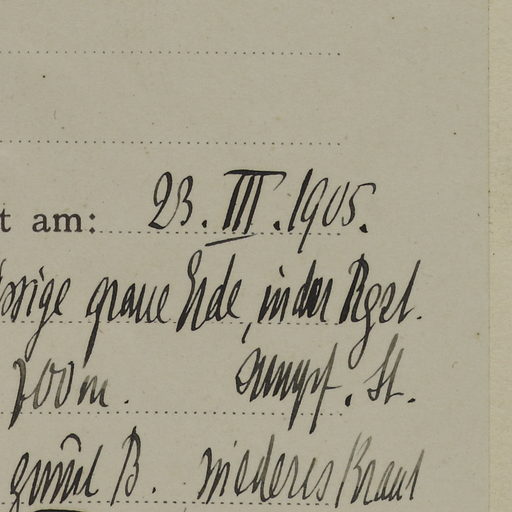 t am: 23. III. 1905.
graue Erde, in der Rgel.
700 m. Sumpf. St.
B. niederes Kraut